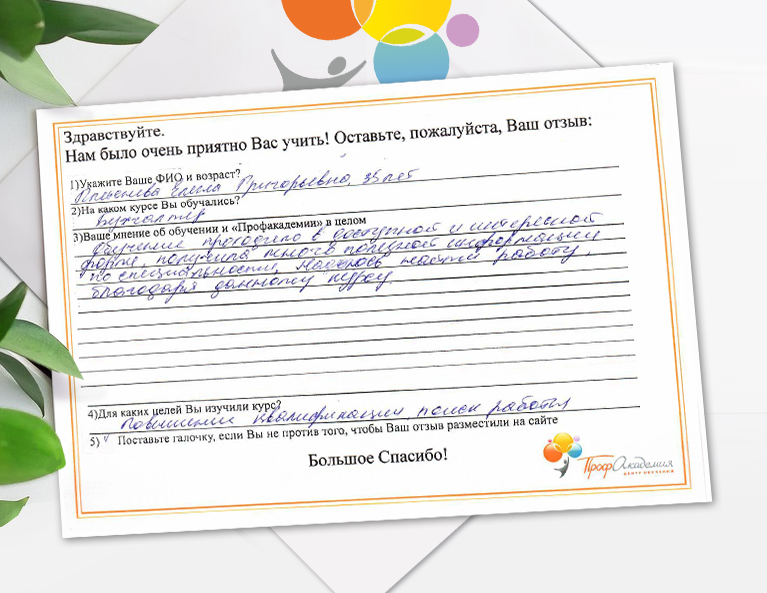 Здравствуйте.
Нам было очень приятно Вас учить! Оставьте, пожалуйста, Ваш отзыв:
1)Укажите Ваше ФИО и возраст?
Григорьевна, 35 лет
2)На каком курсе Вы обучались?
Бухгалтер
3)Ваше мнение об обучении и «Профакадемии» в целом
Обучение проходило в доступной и интересной
форме, получила много полезной информации
по специальности. Надеюсь найти работу,
благодаря данному курсу.
4)Для каких целей Вы изучили курс?
Повышение квалификации, поиск работы
5) √ Поставьте галочку, если Вы не против того, чтобы Ваш отзыв разместили на сайте
Большое Спасибо!
ПрофАкадемия
ЦЕНТР ОБУЧЕНИЯ